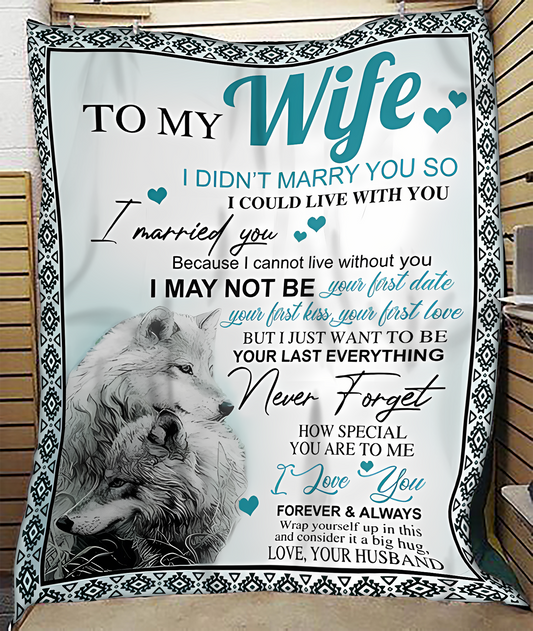 TO MY Wife
I DIDN'T MARRY YOU SO
I COULD LIVE WITH YOU
I married you
Because I cannot live without you
I MAY NOT BE your first date
your first kiss, your first love
BUT I JUST WANT TO BE
YOUR LAST EVERYTHING
Never Forget
HOW SPECIAL
YOU ARE TO ME
I Love You
FOREVER & ALWAYS
Wrap yourself up in this
and consider it a big hug,
LOVE, YOUR HUSBAND